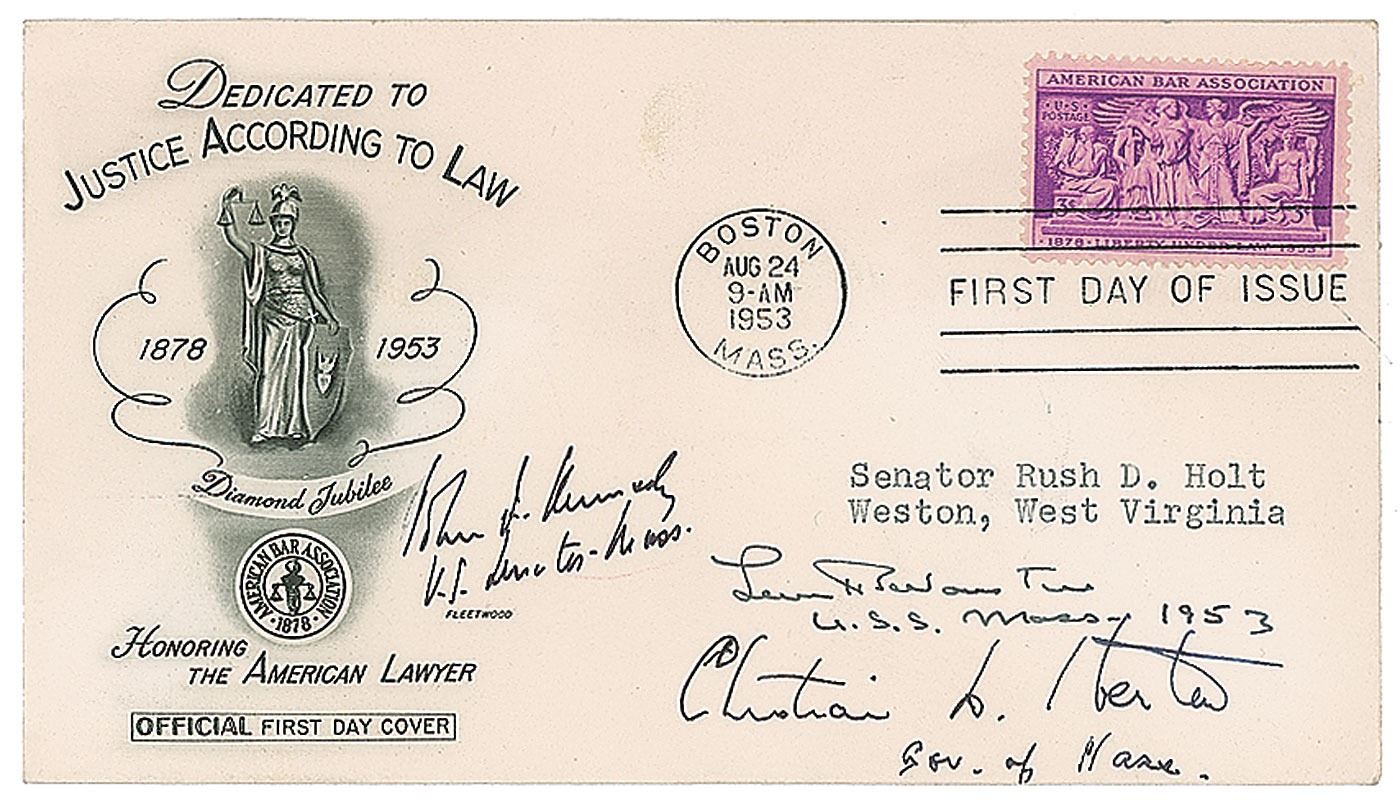 DEDICATED TO
JUSTICE ACCORDING TO LAW
1878 1953
Diamond Jubilee
AMERICAN BAR ASSOCIATION
·1878·
HONORING
THE AMERICAN LAWYER
OFFICIAL FIRST DAY COVER
John F. Kennedy
U.S. Senator - Mass.
FLEETWOOD
BOSTON
AUG 24
9-AM
1953
MASS.
AMERICAN BAR ASSOCIATION
·U·S·
POSTAGE
3¢ 3¢
·1878·LIBERTY UNDER LAW·1953·
FIRST DAY OF ISSUE
Senator Rush D. Holt
Weston, West Virginia
U.S.S. Mass - 1953
Christian A. Herter
Gov. of Mass.